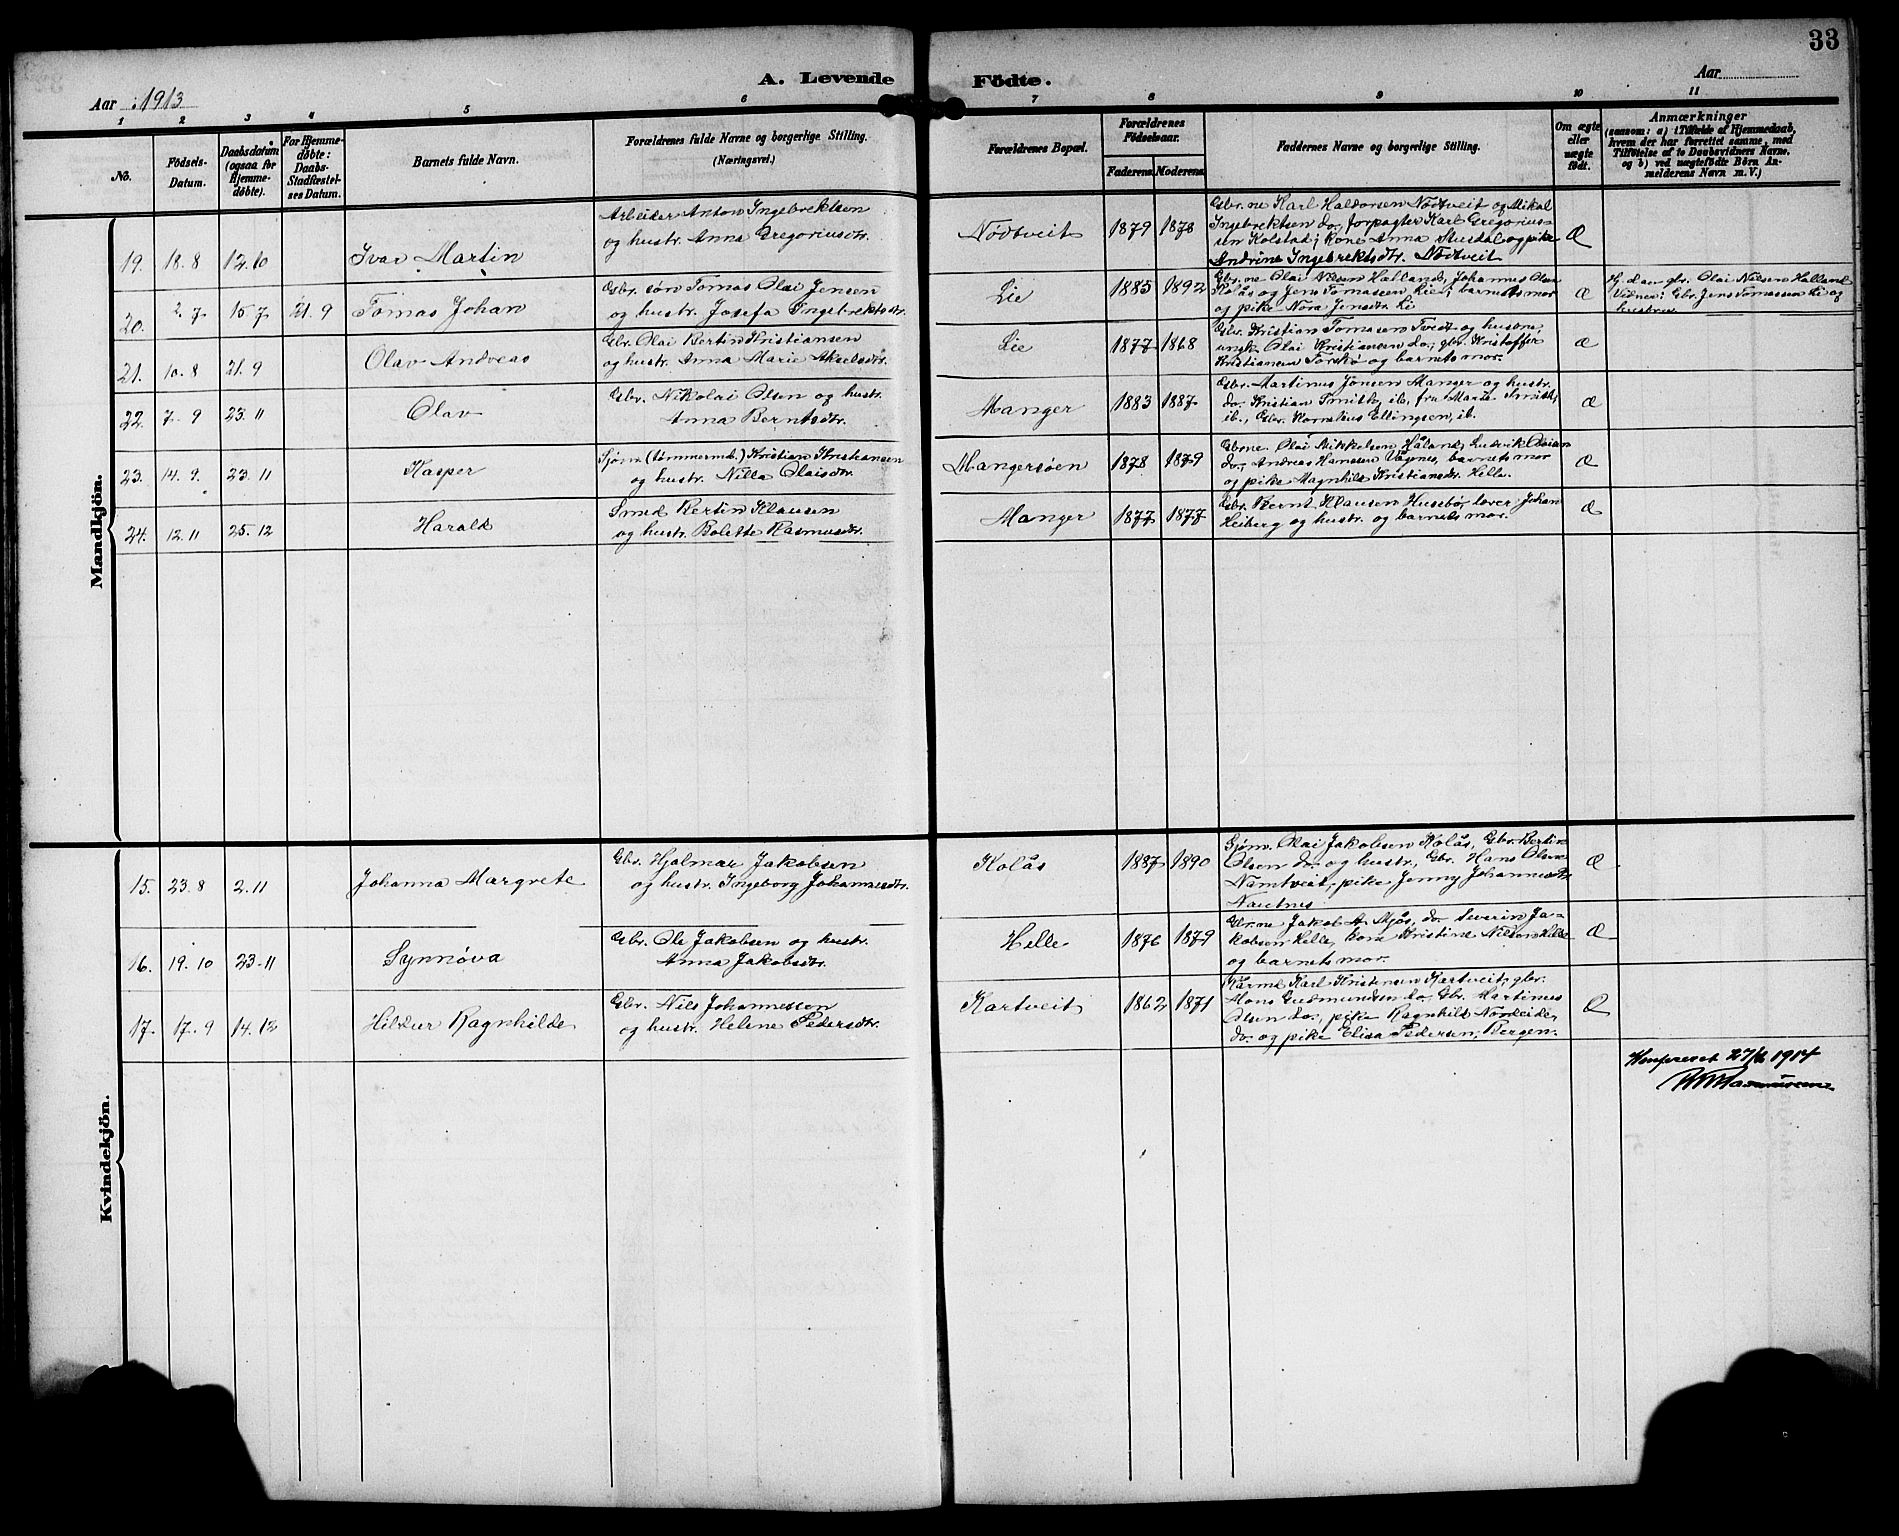 33
A. Levende Födte.
Aar 1913
Aar
1 2 3 4 5 6 7 8 9 10 11
No.
Födsels-
Datum.
Daabsdatum
(ogsaa for
Hjemme-
døbte).
For Hjemme-
döbte:
Daabs-
Stadfæstel-
ses Datum.
Barnets fulde Navn.
Forældrenes fulde Navne og borgerlige Stilling.
(Næringsvei.)
Forældrenes Bopæl.
Forældrenes
Födselsaar.
Faderens. Moderens.
Faddernes Navne og borgerlige Stilling.
Om ægte
eller
uægte
födt.
Anmærkninger
(saasom: a) i Tilfælde af Hjemmedaab,
hvem der har forrettet samme, med
Tilföielse af to Daabsvidners Navne,
og b) ved uægtefödte Börn An-
melderens Navn m. V.)
Mandkjön.
19. 18.8 12.10 Ivar Martin
Arbeider Anton Ingebrektsen
og hustr. Anna Gregoriusdtr.
Nödtveit 1879 1878
Gbr.ne Karl Haldorsen Nödtveit og Mikal
Ingebrektsen do, forpagter Karl Gregorius-
sen Kolstad; kone Anna Stusdal og pike
Andrine Ingebrektsdtr. Nödtveit
Æ
20. 2.7 15.7 21.9 Tomas Johan
Gbr. søn Tomas Olai Jensen
og hustr. Josefa Ingebrektsdtr.
Lie 1885 1892
Gbr.ne Olai Nilsen Halland, Johannes Olsen
Kolås og Jens Tomassen Lie; barnets mor
og pike Nora Jensdtr. Li
Æ
Hj. d. av gbr. Olai Nilsen Halland
Vidner: Gbr. Jens Tomassen Li og
hustru
21. 10.8 21.9 Olav Andreas
Gbr. Olai Bertin Kristiansen
og hustr. Anna Marie Akselsdtr.
Lie 1877 1868
Gbr. Kristian Tomasen Tvedt og hustru,
ungk. Olai Kristiansen do, gbr. Kristoffer
Kristiansen Toskø og barnets mor.
Æ
22. 7.9 23.11 Olav
Gbr. Nikolai Olsen og hustr.
Anna Berntsdtr.
Manger 1883 1887
Gbr. Martinus Jonsen Manger og hustr.
do. Kristian Smith, ib. fru Marie Smith,
ib., Gbr. Kornelius Ellingsen, ib.
Æ
23. 14.9. 23.11 Kasper
Sjøm. (tømmerm.) Kristian Kristiansen
og hustr. Nilla Olaisdtr.
Mangersøen 1878 1879
Gbrne. Olai Mikkelsen Håland, Ludvik Olsen
do, Andreas Hansen Vågnes, barnets mor
og pike Magnhild Kristiansdtr. Helle.
Æ
24. 12.11 25.12 Harald
Smed Bertin Klausen
og hustr. Bolette Rasmusdtr.
Manger 1877 1877
Gbr. Bernt Klausen Husebø, lærer Johan
Heiberg og hustr. og barnets mor.
Æ
Kvindekjön.
15. 23.8 2.11 Johanna Margrete
Gbr. Hjalmar Jakobsen
og hustr. Ingeborg Johannesdtr.
Kolås 1887 1890
Sjøm. Olai Jakobsen Kolås, Gbr. Bertin
Olsen do. og hustr., Gbr. Hans Olsen
Namtveit, pike Jenny Johannesdtr
Nautnes
Æ
16. 19.10 23.11 Synnøva
Gbr. Ole Jakobsen og hustr.
Anna Jakobsdtr.
Helle 1876 1879
Gbr.ne Jakob A. Mjøs, do. Severin Ja-
kobsen Helle, kone Kristine Nilsen Helle
og barnets mor.
Æ
17. 17.9 14.12 Hildur Ragnhilde
Gbr. Nils Johannessen
og hustr. Helene Pedersdtr.
Kartveit 1862 1871
Kårm. Karl Kristensen Kartveit, gbr.
Mons Gudmundsen do, Gbr. Martinus
Olsen do, pike Ragnhild Nordeide,
do. og pike Elisa Pedersen, Bergen.
Æ
Konfereret 27/6 1914